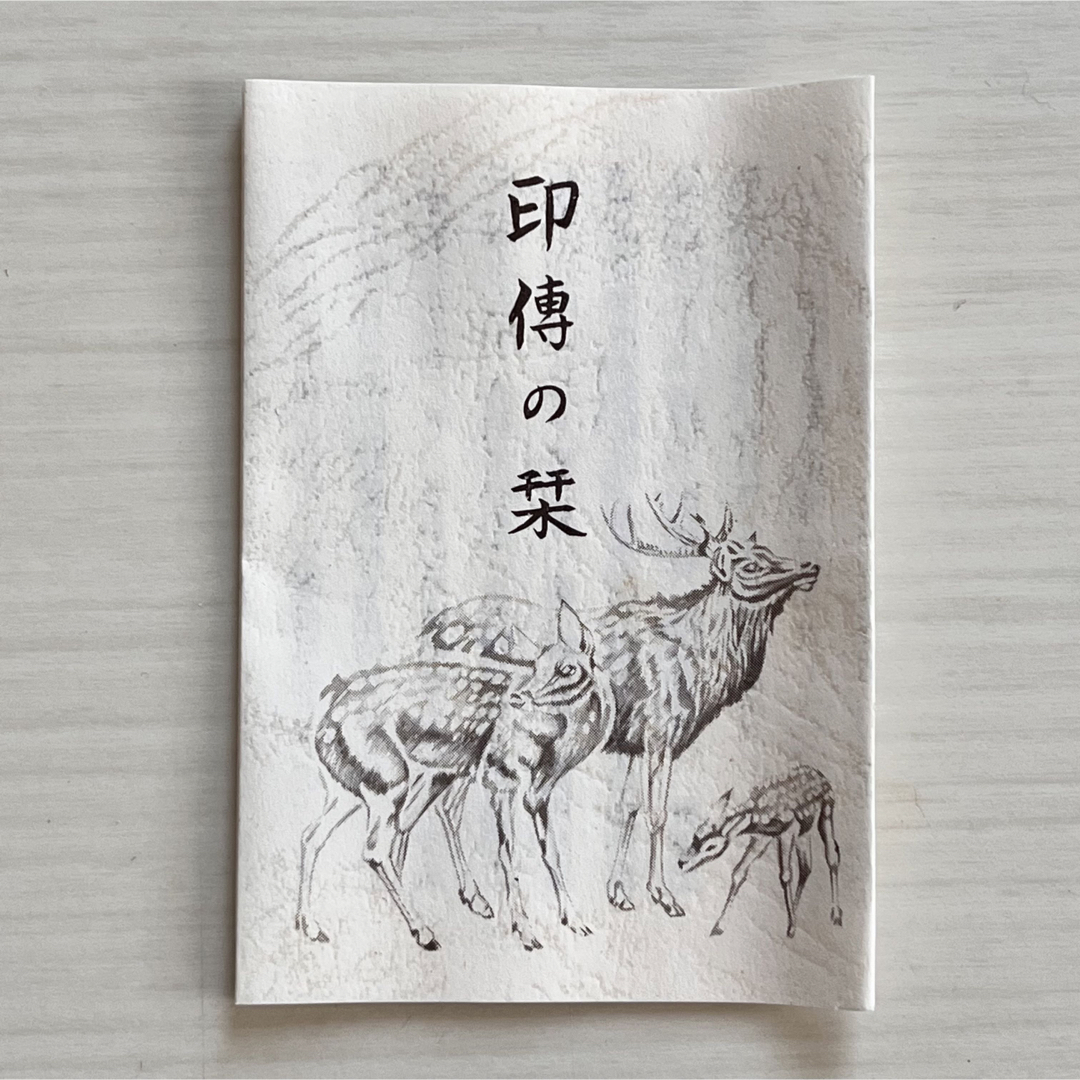 印傳の栞